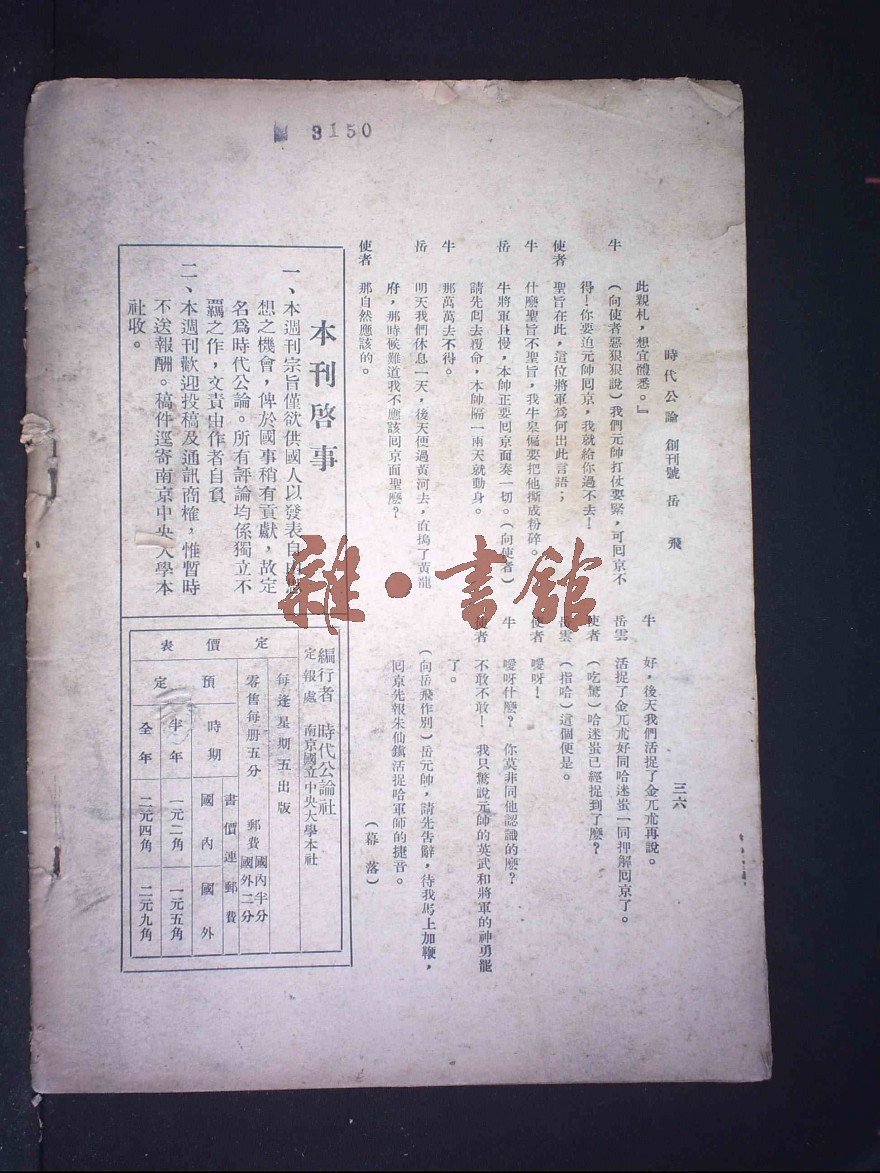 3150
時代公論 創刊號 岳飛
三六
此親札，想宜體悉。』
牛 （向使者惡狠狠說）我們元帥打仗要緊，可囘京不
得！你要迫元帥囘京，我就給你過不去！
使者 聖旨在此，這位將軍爲何出此言語；
牛 什麼聖旨不聖旨，我牛皋偏要把他撕成粉碎。
岳 牛將軍且慢，本帥正要囘京面奏一切。（向使者）
請先囘去覆命，本帥隔一兩天就動身。
牛 那萬萬去不得。
岳 明天我們休息一天，後天便過黃河去，直搗了黃龍
府，那時候難道我不應該囘京面聖麼？
使者 那自然應該的。
牛 好，後天我們活捉了金兀朮再說。
岳雲 活捉了金兀朮好同哈迷蚩一同押解囘京了。
使者 （吃驚）哈迷蚩已經捉到了麼？
岳雲 （指哈）這個便是。
使者 噯呀！
牛 噯呀什麼？你莫非同他認識的麼？
使者 不敢不敢！我只驚說元帥的英武和將軍的神勇罷
了。
（向岳飛作別）岳元帥，請先吿辭，待我馬上加鞭，
囘京先報朱仙鎮活捉哈軍師的捷音。
（幕落）
本刊啓事
一、本週刊宗旨僅欲供國人以發表自由思
想之機會，俾於國事稍有貢獻，故定
名爲時代公論。所有評論均係獨立不
羈之作，文責由作者自負
二、本週刊歡迎投稿及通訊商榷，惟暫時
不送報酬。稿件逕寄南京中央大學本
社收。
編行者 時代公論社
定報處 南京國立中央大學本社
每逢星期五出版
定價表
零售每册五分 郵費國內半分國外二分
預定
時期 書價連郵費
國內 國外
半年 一元二角 一元五角
全年 二元四角 二元九角
雜·書館